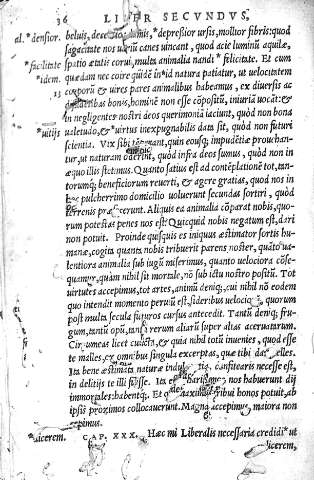 36 LIBER SECVNDVS,
al. *densior. beluis, decentior tauris, *depressior ursis, mollior fibris: quod
sagacitate nos nariū canes vincant, quod acie luminū aquilæ,
*facilitate spatio ætatis corui, multa animalia nandi * felicitate. Et cum
*idem. quædam nec coire quidē in *id natura patiatur, ut uelocitatem
13 corporū & uires pares animalibus habeamus, ex diuersis ac
bonis, hominē non esse cōpositū, iniuriā uocāt: &
in negligentes nostri deos querimoniā iaciunt, quòd non bona
*uitijs ualetudo, & *uirtus inexpugnabilis data sit, quòd non futuri
scientia. Vix sibi quin eousq; impudētiæ prouehan-
tur, ut naturam oderint, quòd infra deos sumus, quòd non in
æquo illis stetimus. Quanto satius est ad contēplationē tot, tan-
torumq; beneficiorum reuerti, & agere gratias, quod nos in
hoc pulcherrimo domicilio uoluerunt secundas sortiri, quòd
terrenis præfecerunt. Aliquis ea animalia cōparat nobis, quo-
rum potestas penes nos est? Quicquid nobis negatum est, dari
non potuit. Proinde quisquis es iniquus æstimator sortis hu-
manæ, cogita quanta nobis tribuerit parens noster, quātò ua-
lentiora animalia sub iugū miserimus, quanto uelociora cōse-
quamur, quàm nihil sit mortale, nō sub ictu nostro positū. Tot
virtutes accepimus, tot artes, animū deniq;, cui nihil nō eodem
quo intendit momento peruiū est, sideribus uelociorē, quorum
post multa secula futuros cursus antecedit. Tantū deniq; fru-
gum, tantū opū, tantū rerum aliarū super alias aceruatarum.
Circumeas licet cuncta, & quia nihil totū inuenies, quod esse
te malles, ex omnibus singula excerptas, quæ tibi dari uelles.
Ita bene æstimata naturæ indulgentia, confitearis necesse est,
in delitijs te illi fuisse. Ita est: charissimos nos habuerunt dij
immortales: habentq;. Et qui maximus tribui honos potuit, ab
ipsis proximos collocauerunt. Magna accepimus, maiora non
cepimus.
*dicerem. CAP. XXX. Hæc mi Liberalis necessaria credidi *ut
dicerem,